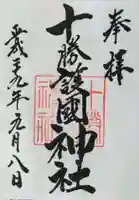 奉拝
十勝護國神社
平成二十九年九月八日